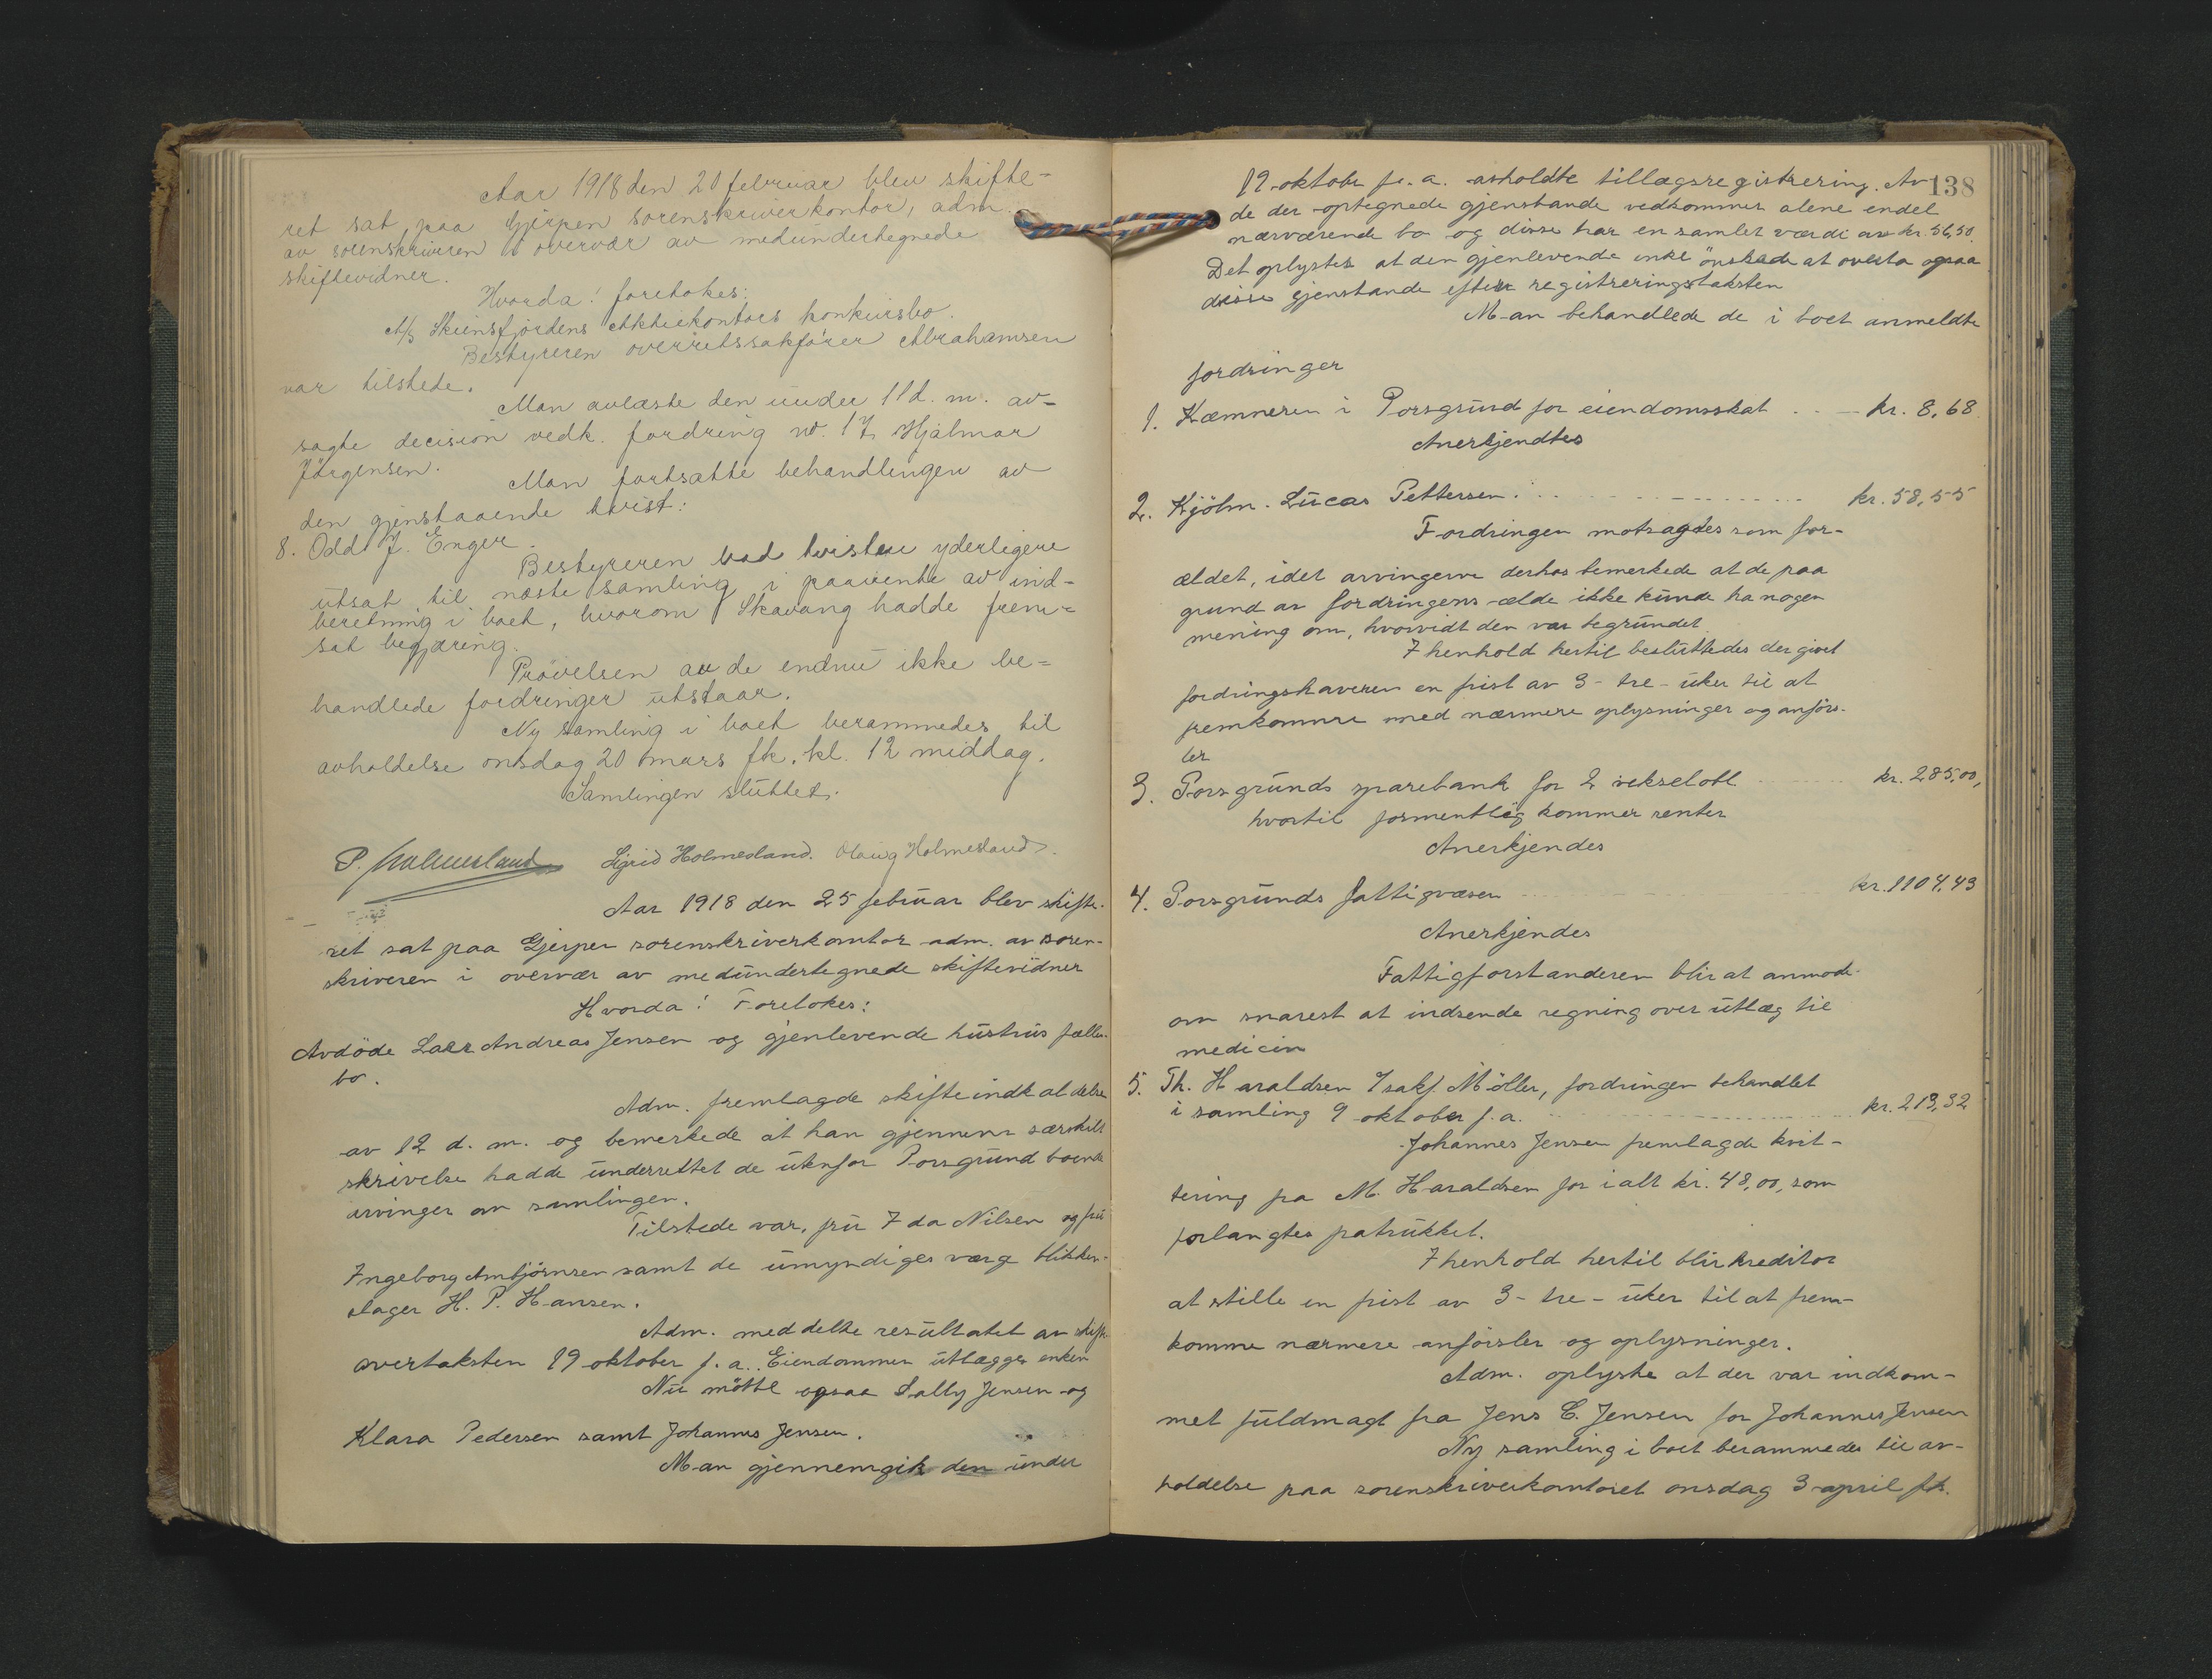 Aar 1918 den 20 februar blev skifte-
ret sat paa Gjerpen sorenskriverkontor, adm.
av sorenskriveren i overvær av medundertegnede
skiftevidner.
Hvorda! foretokes:
A/S Skiensfjordens Aktiekontors konkursbo.
Bestyreren overretssakfører Abrahamsen
var tilstede.
Man avlæste den under 11 d. m. av-
sagte decision vedk. fordring no. 17 Hjalmar
Jørgensen.
Man fortsatte behandlingen av
den gjenstaaende tvist:
8. Odd J. Enger.
Bestyreren bad tvisten yderligere
utsat til næste samling i paavente av ind-
beretning i boet, hvorom Skavang hadde frem-
sat begjæring.
Prøvelsen av de endnu ikke be-
handlede fordringer utstaar.
Ny samling i boet berammedes til
avholdelse onsdag 20 mars fk. kl. 12 middag.
Samlingen sluttet.
P. Holmesland Sigrid Holmesland. Olaug Holmesland.
Aar 1918 den 25 februar blev skifte-
ret sat paa Gjerpen sorenskriverkontor adm. av soren-
skriveren i overvær av medundertegnede skiftevidner
Hvorda! Foretokes:
Avdöde Lars Andreas Jensen og gjenlevende hustrus fælles-
bo.
Adm. fremlagde skifteindkaldelse
av 12 d. m. og bemerkede at han gjennem særskilt
skrivelse hadde underrettet de utenfor Porsgrund boende
arvinger om samlingen.
Tilstede var, fru Ida Nilsen og fru
Ingeborg Ambjörnsen samt de umyndiges værge blikken-
slager H. P. Hansen.
Adm. meddelte resultatet av skifte-
overtaksten 19 oktober f. a. Eiendommen utlægges enken
Nu mötte ogsaa Sally Jensen og
Klara Pedersen samt Johannes Jensen.
Man gjennemgik den under
138
19 oktober f. a. avholdte tillægsregistrering. Av
de der optegnede gjenstande vedkommer alene endel
nærværende bo og disse har en samlet værdi av kr. 56,50.
Det oplystes at den gjenlevende enke önskede at overta ogsaa
disse gjenstande efter registreringstaksten
Man behandlede de i boet anmeldte
fordringer
1. Kæmneren i Porsgrund for eiendomsskat . . - kr. 8,68.
Anerkjendtes
2. Kjölm. Lucas Pettersen . . . kr. 58,55
Fordringen motsagdes som for-
ældet, idet arvingerne derhos bemerkede at de paa
grund av fordringens ælde ikke kunde ha nogen
mening om, hvorvidt den var begrundet.
I henhold hertil besluttedes der givet
fordringshaveren en frist av 3 - tre - uker til at
fremkomme med nærmere oplysninger og anförs-
ler
3. Porsgrunds sparebank for 2 vekselobl. kr. 285,00,
hvortil formentlig kommer renter
Anerkjendes
4. Porsgrunds fattigvæsen kr. 1104,43
Anerkjendes
Fattigforstanderen blir at anmode
om snarest at indsende regning over utlæg til
medicin
5. Th. Haraldsen v/sakf. Möller, fordringen behandlet
i samling 9 oktober f. a. kr. 213,32
Johannes Jensen fremlagde kvit-
tering fra M. Haraldsen for ialt kr. 48,00, som
forlangtes fratrukket.
I henhold hertil blir kreditor
at stille en frist av 3 - tre - uker til at frem-
komme nærmere anförsler og oplysninger.
Adm. oplyste at der var indkom-
met fuldmagt fra Jens C. Jensen for Johannes Jensen
Ny samling i boet berammedes til av-
holdelse paa sorenskriverkontoret onsdag 3 april fk.